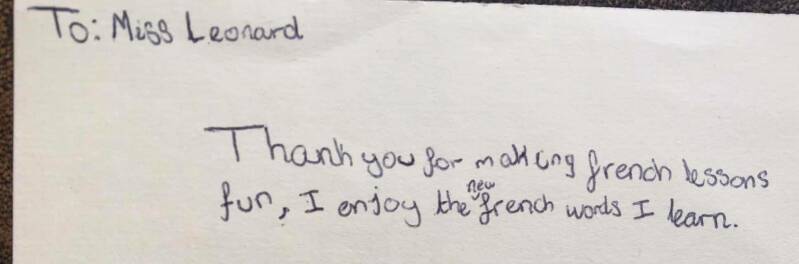 To: Miss Leonard
Thank you for making french lessons
fun, I enjoy the new french words I learn.